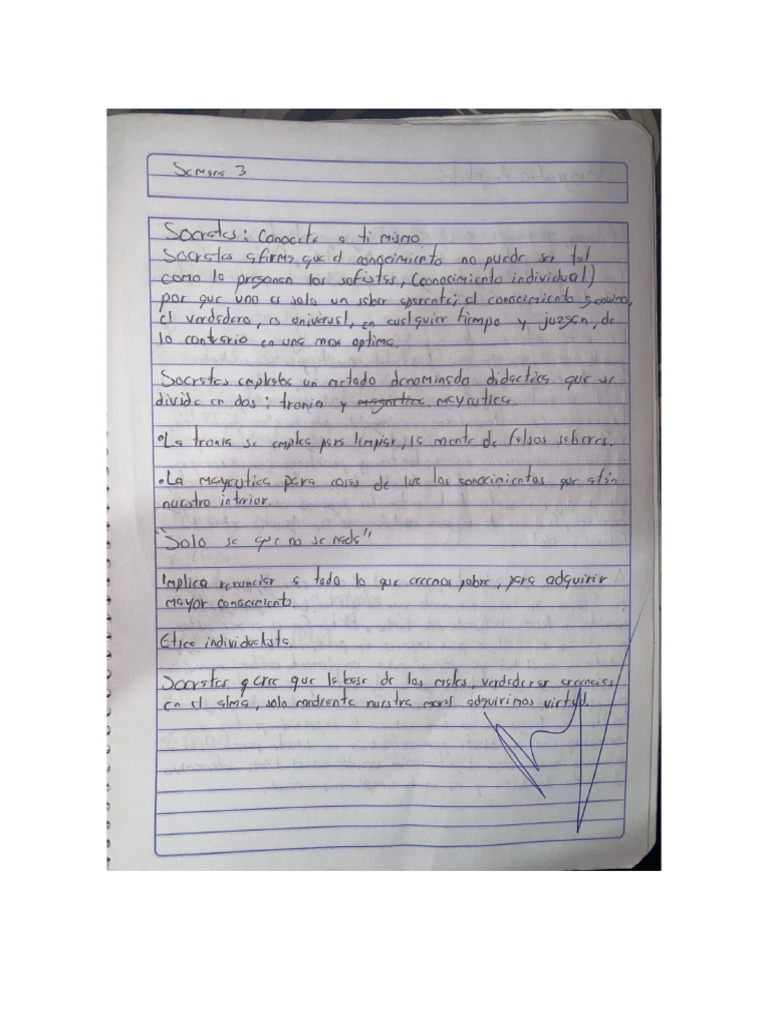 Semana 3
Socrates: Conocete a ti mismo.
Socrates afirma que el conocimiento no puede ser tal
como lo presenan los sofistas, (conocimiento individual)
por que uno es solo un saber aparente; el conocimiento genuino,
el verdadero, es universal, en cualquier tiempo y juzgan, de
lo contrario en una mas optima.
Socrates empleaba un metodo denominado didactica que se
divide en dos: Ironia y mayeutica.
• La Ironia se emplea para limpiar, la mente de falsos saberes.
• La mayeutica para cosas de luz los conocimientos que están
nuestro interior.
"Solo se que no se nada"
Implica renunciar a todo lo que creemos sobre, para adquirir
mayor conocimiento.
Etica individualista.
Socrates cree que la base de las verdaderas creencias
en el alma, solo mediante nuestra moral adquirimos virtud.